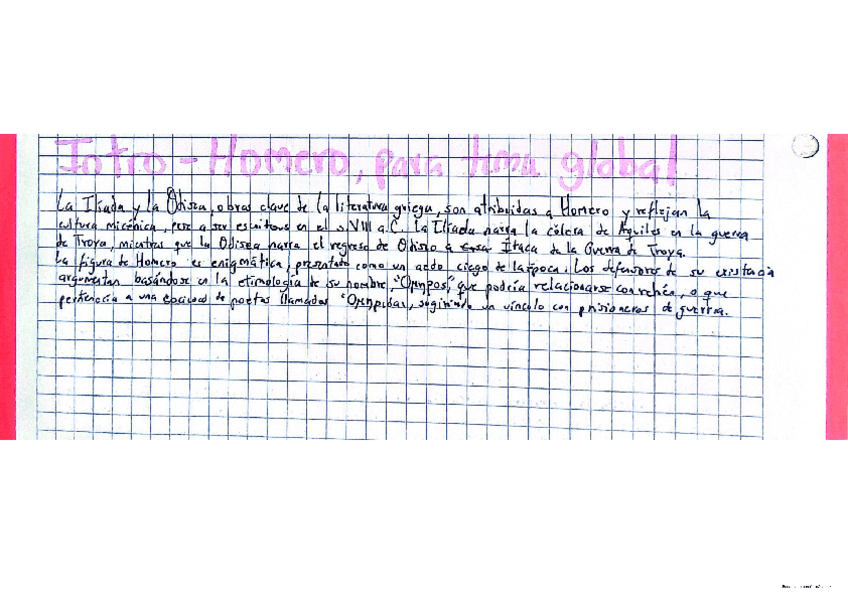 Intro - Homero, para tema global
La Ilíada y la Odisea, obras clave de la literatura griega, son atribuidas a Homero y reflejan la
cultura micénica, pese a ser escritas en el s. VIII a.C. La Ilíada narra la cólera de Aquiles en la guerra
de Troya, mientras que la Odisea narra el regreso de Odiseo a Ítaca de la Guerra de Troya.
La figura de Homero es enigmática, presentado como un aedo ciego de la época. Los defensores de su existencia
argumentan basándose en la etimología de su nombre, "Ὅμηρος", que podría relacionarse con rehén, o que
pertenecía a una sociedad de poetas llamados Ὁμηρίδαι, sugiriendo un vínculo con prisioneros de guerra.